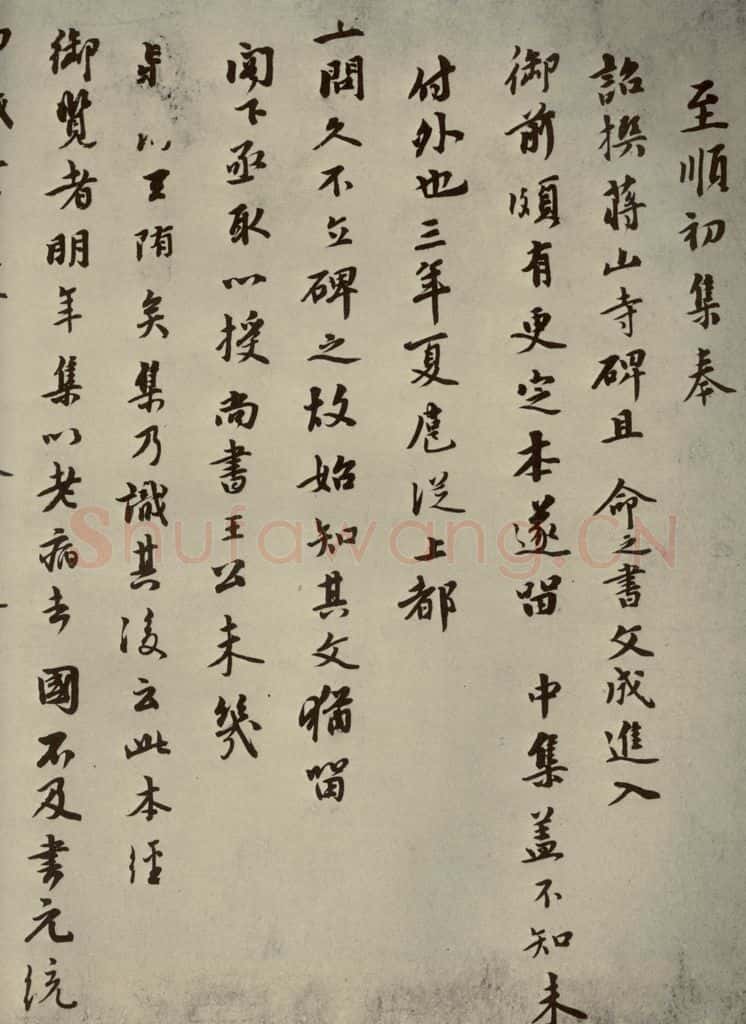 至順初集奉
詔撰蔣山寺碑且命之書文成進入
御前頗有更定本遂留中集蓋不知未
付外也三年夏扈從上都
上問久不立碑之故始知其文猶留
閣下亟取以授尚書王公未幾
矣集乃識其後云此本經
御覽者明年集以老病去國不及書元統
Shufawang.CN